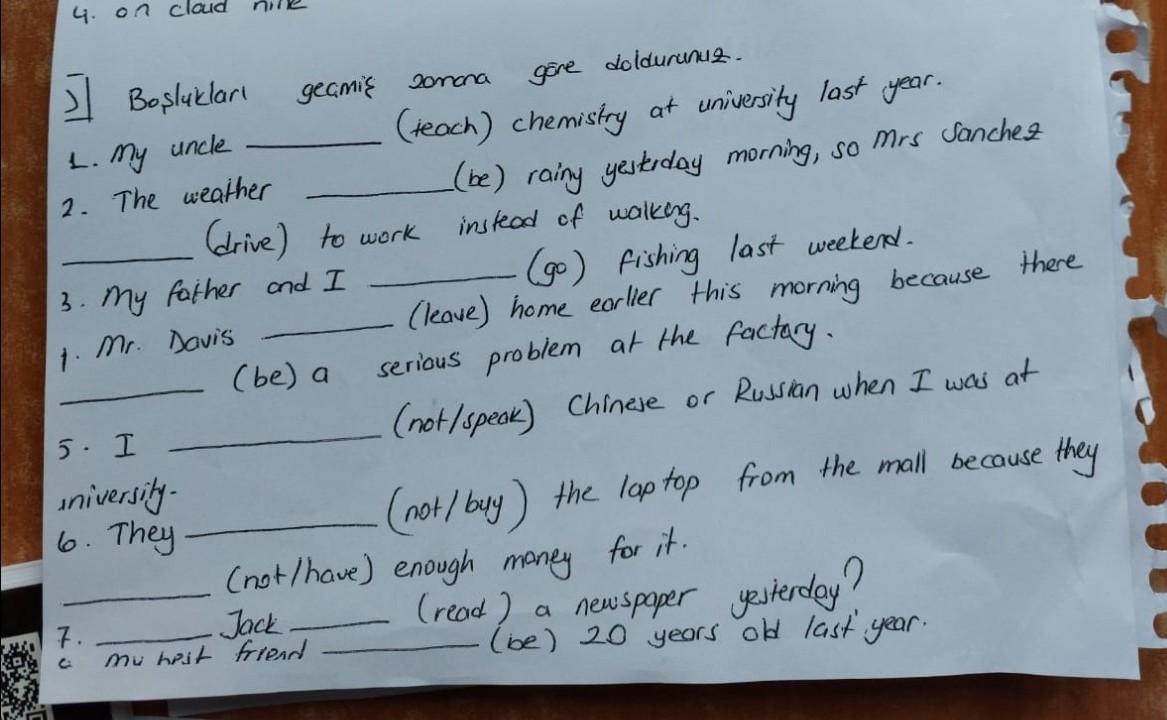 4. on cloud nine
5] Boşlukları geçmiş zamana göre doldurunuz.
1. My uncle __________ (teach) chemistry at university last year.
2. The weather __________ (be) rainy yesterday morning, so Mrs Sanchez
__________ (drive) to work instead of walking.
3. My father and I __________ (go) fishing last weekend.
1. Mr. Davis __________ (leave) home earlier this morning because there
__________ (be) a serious problem at the factory.
5. I __________ (not/speak) Chinese or Russian when I was at
university.
6. They __________ (not/buy) the laptop from the mall because they
__________ (not/have) enough money for it.
7. ________ Jack ________ (read) a newspaper yesterday?
my best friend __________ (be) 20 years old last year.